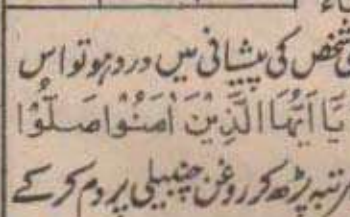 شخص کی پیشانی میں درد ہو تو اس
یَا اَیُّهَا الَّذِیْنَ اٰمَنُوْا صَلُّوْا
مرتبہ پڑھ کر روغن چنبیلی پر دم کر کے